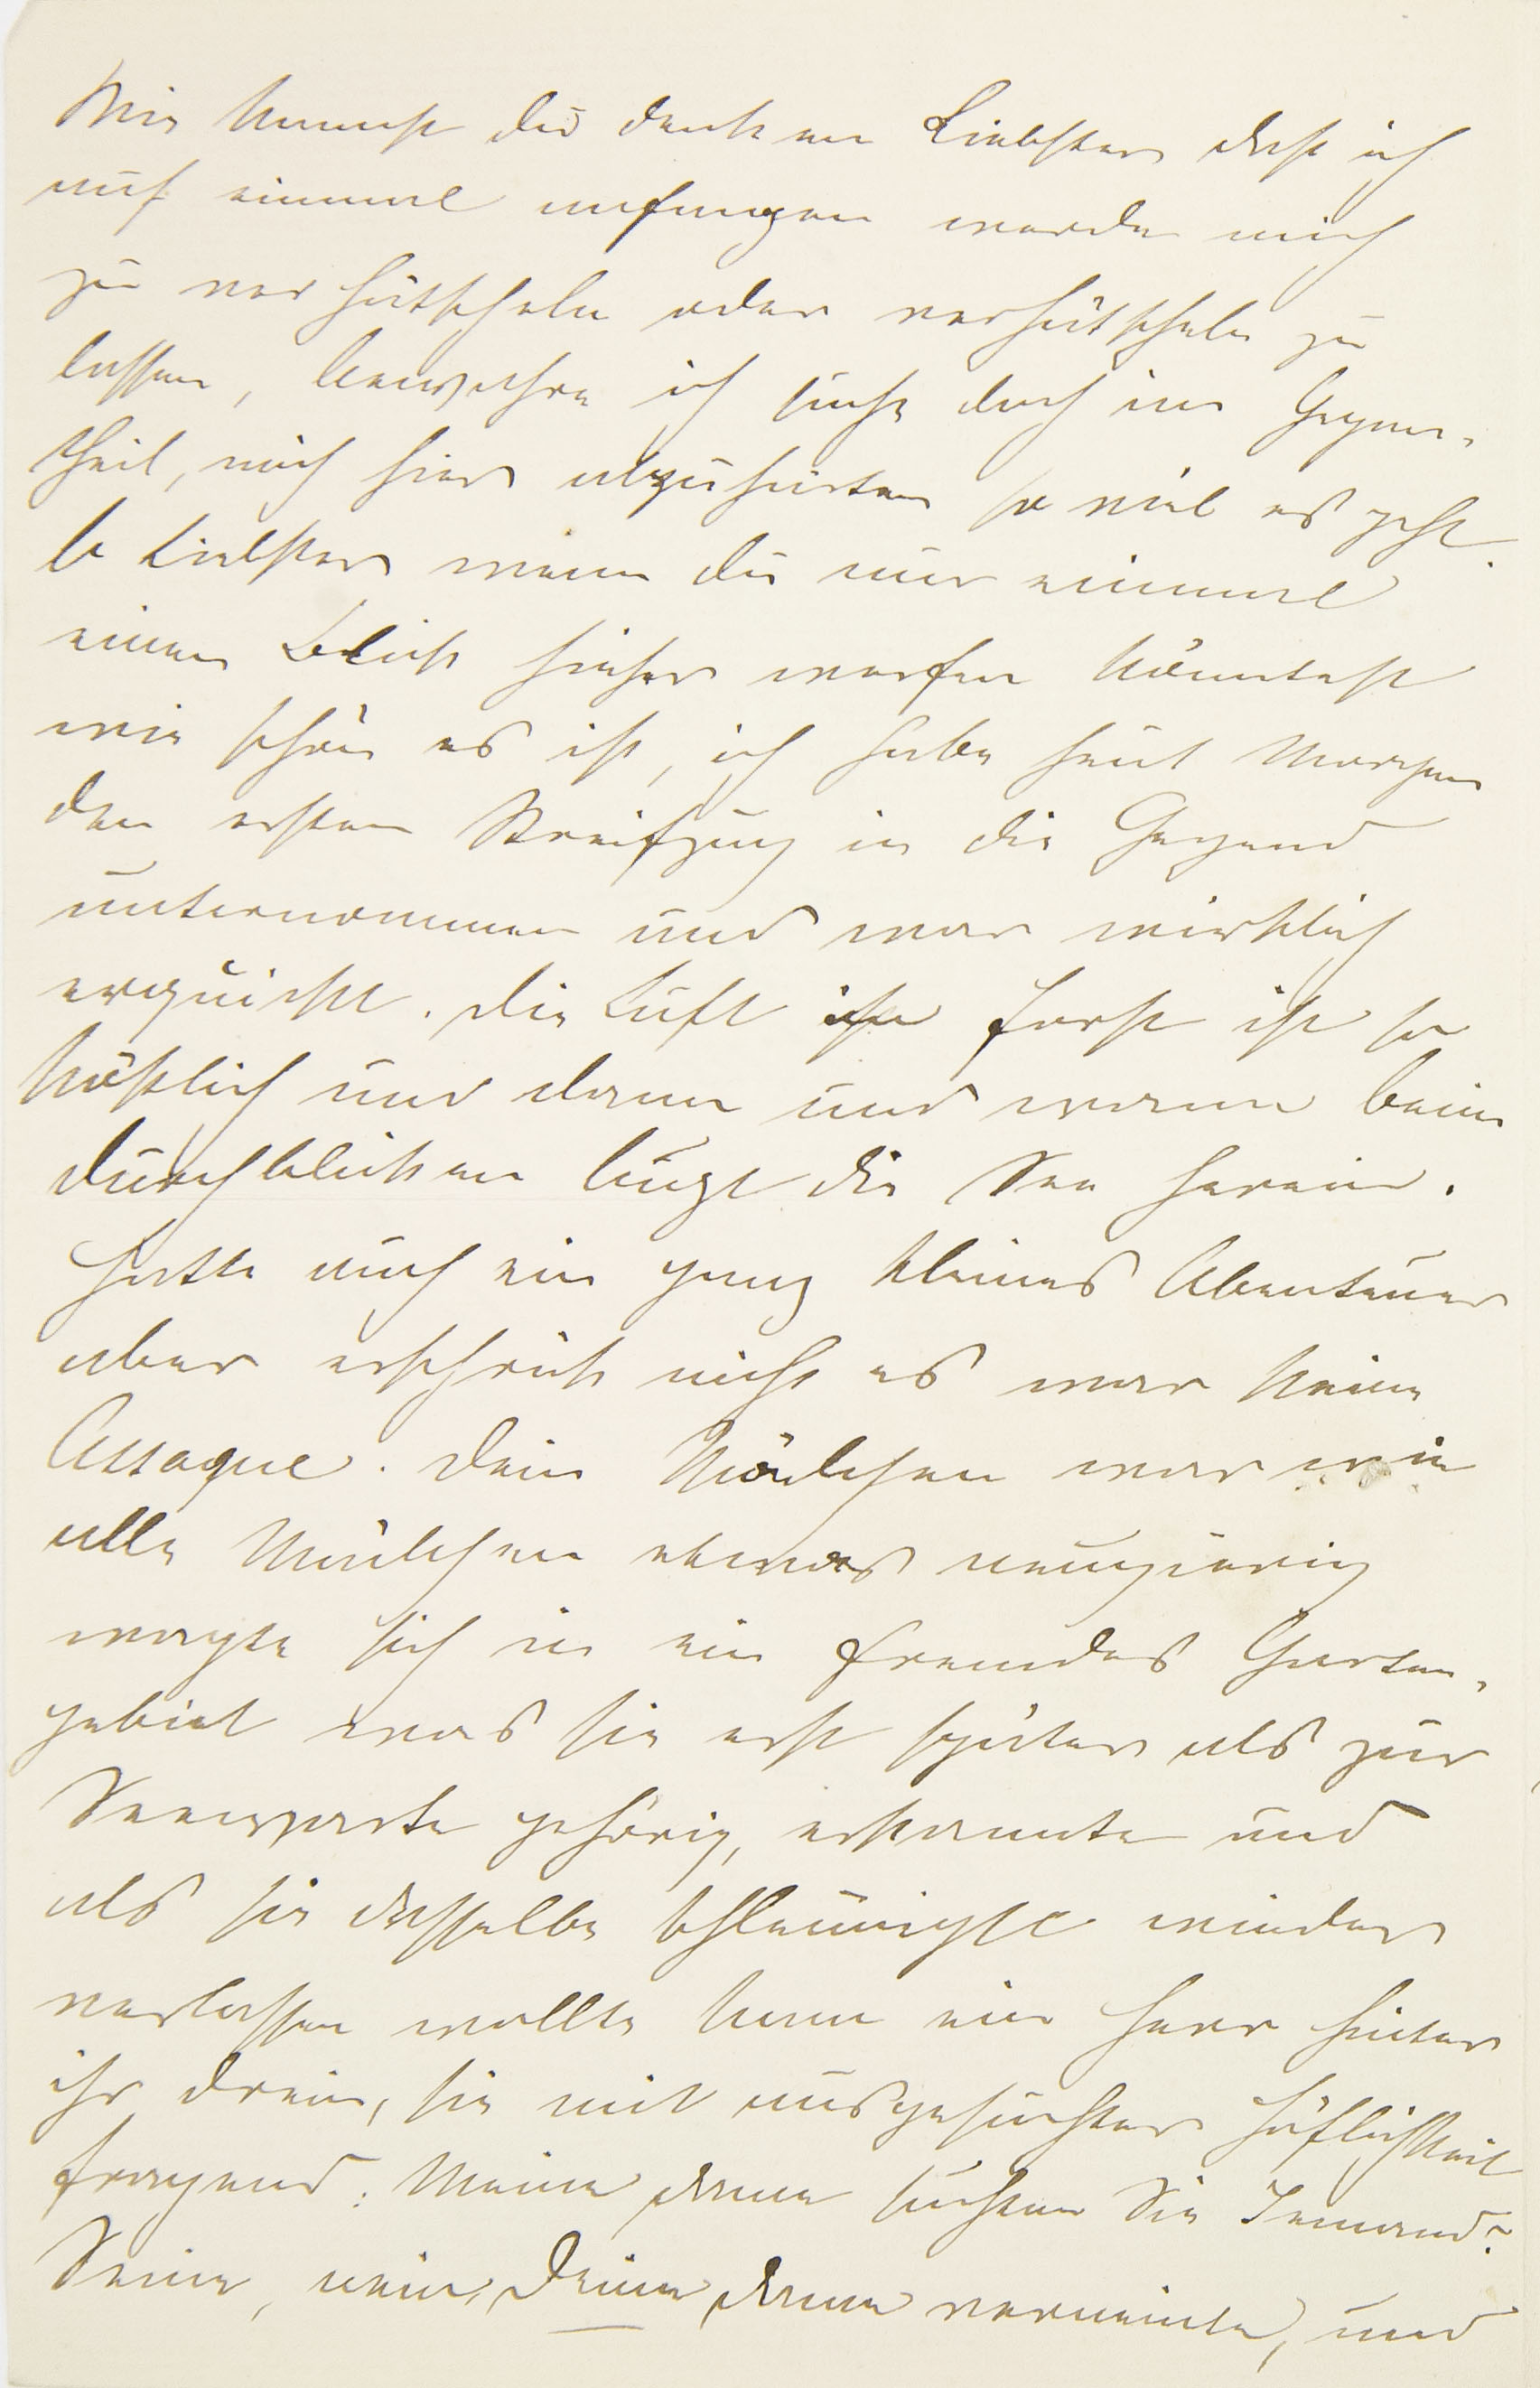 Wie kannst du denken Liebster daß ich
auf einmal anfangen werde mich
zu verhätscheln oder verhätscheln zu
lassen, bewahre ich suche doch im Gegen-
theil, mich hier abzuhärten so viel es geht.
b Liebster wenn du nur einmal
einen Blick hieher werfen könntest
wie schön es ist, ich habe heut Morgen
den ersten Streifzug in die Gegend
unternommen und war wirklich
erquickt. Die Luft im Forst ist so
köstlich und dann und wann beim
durchblicken lugt die See herein.
Hatte auch ein ganz kleines Abenteuer
aber erschrick nicht es war keine
Attaque. Dein Mädchen war wie
alle Mädchen etwas neugierig
wagte sich in ein fremdes Garten-
gebiet was sie erst später als zur
Seewarte gehörig, erkannte und
als sie dasselbe schleunigst wieder
verlassen wollte kam ein Herr hinter
ihr drein, sie mit ausgesuchter Höflichkeit
fragend: Meine Dame suchten Sie Jemand?
Seine, nein, Deine Dame verneinte, und